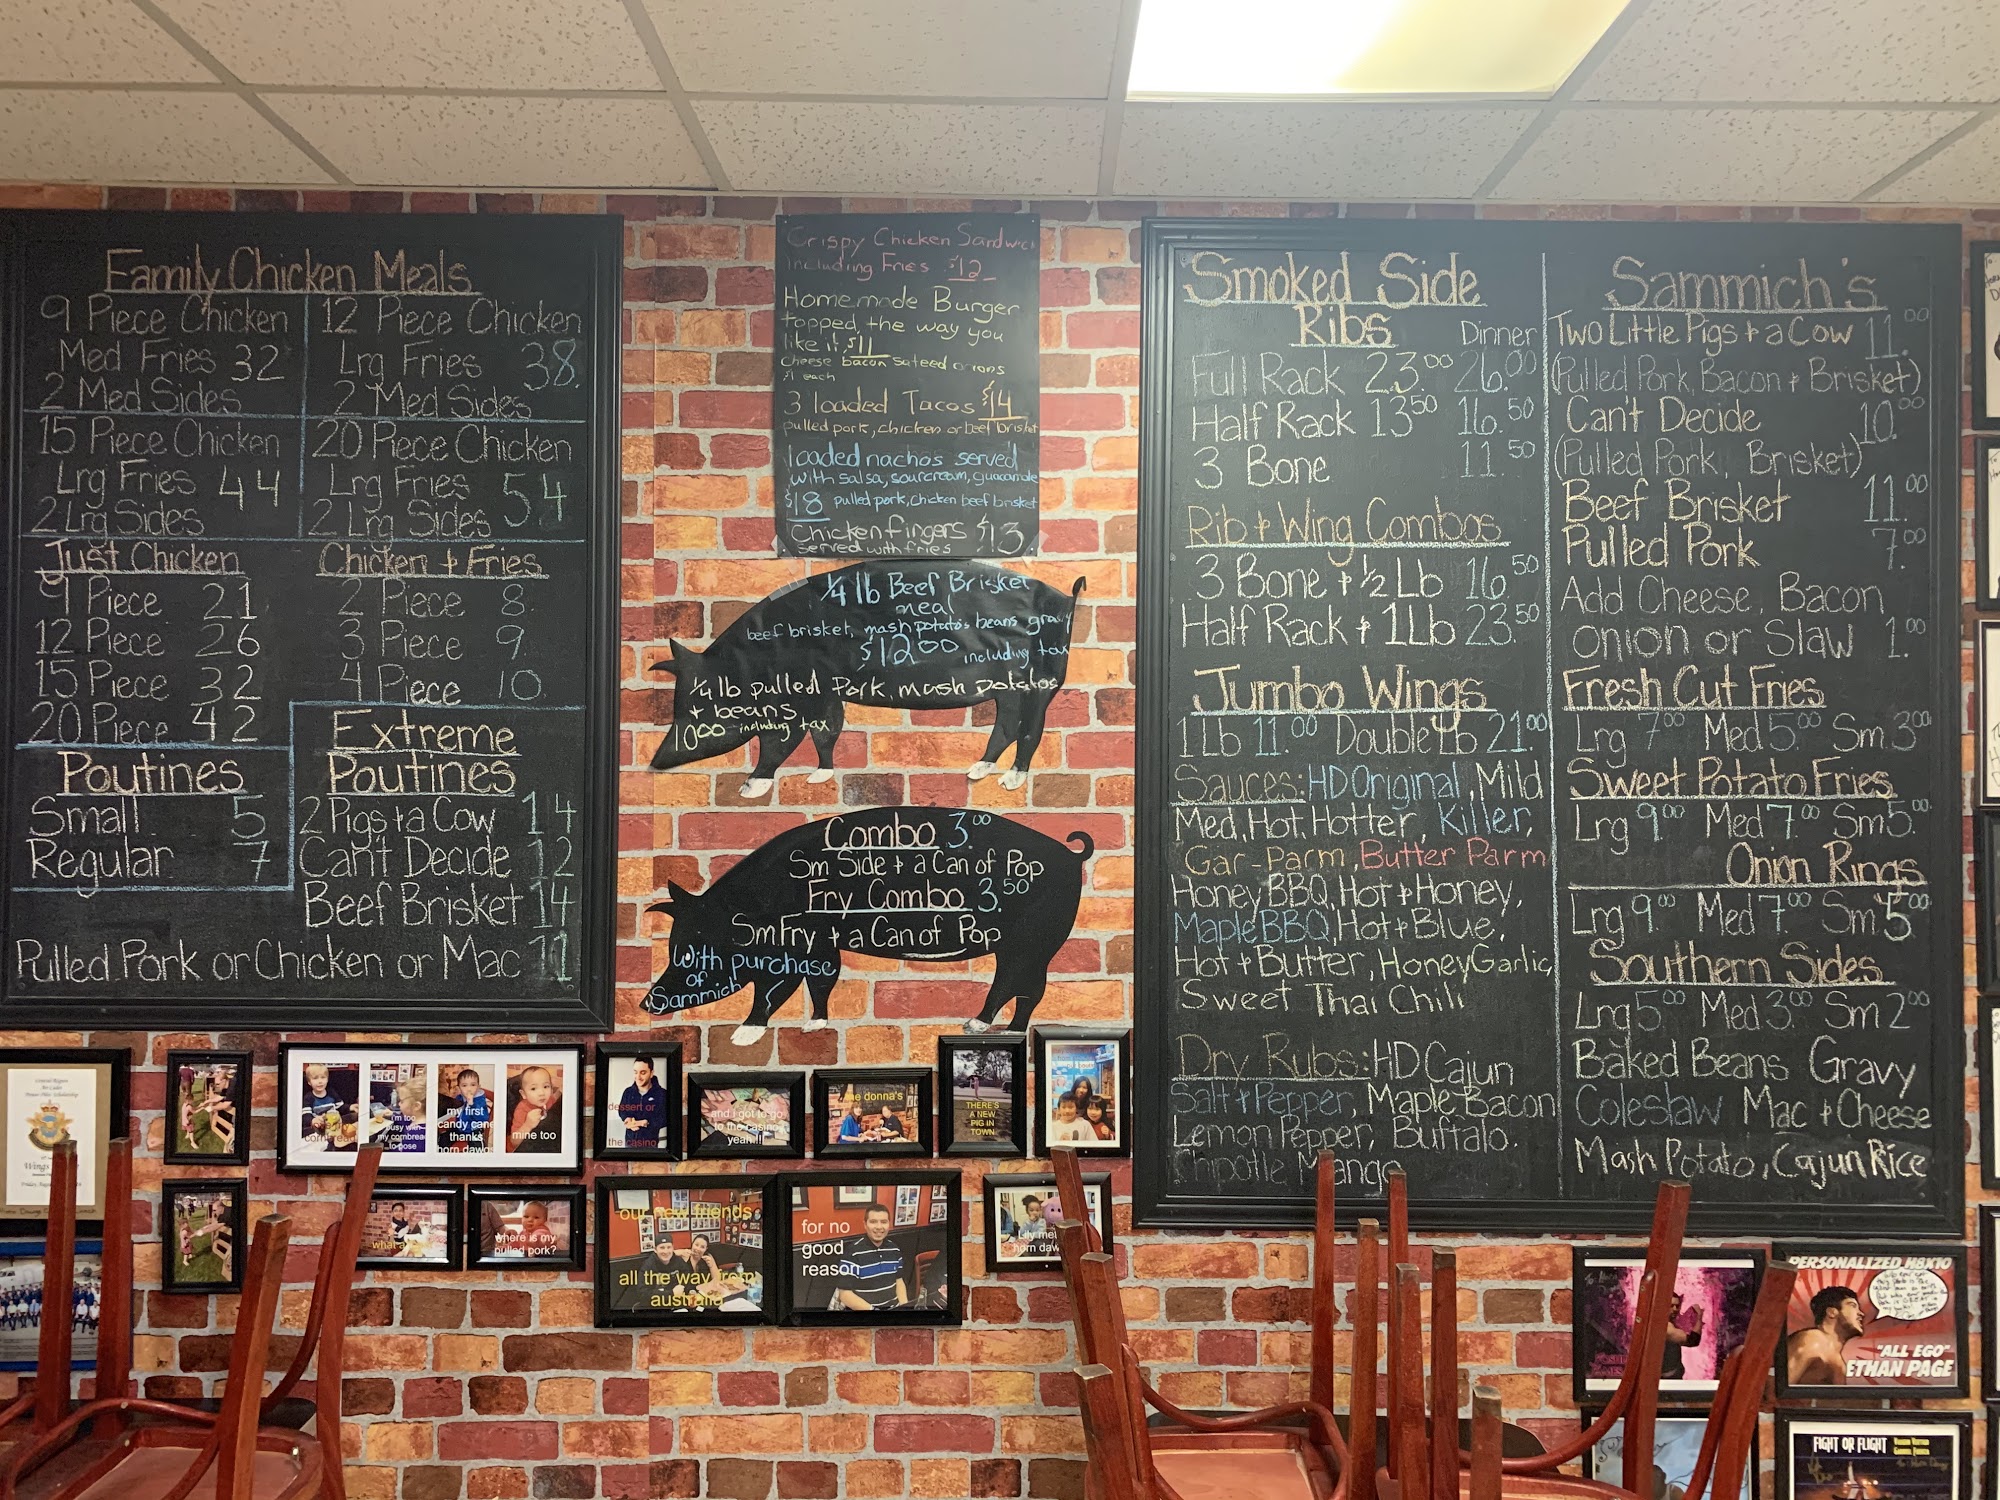 Family Chicken Meals
9 Piece Chicken
Med Fries 32
2 Med Sides
12 Piece Chicken
Lrg Fries 38.
2 Med Sides
15 Piece Chicken
Lrg Fries 44
2 Lrg Sides
20 Piece Chicken
Lrg Fries 54
2 Lrg Sides
Just Chicken
9 Piece 21
12 Piece 26
15 Piece 32
20 Piece 42
Chicken + Fries
2 Piece 8.
3 Piece 9.
4 Piece 10.
Poutines
Small 5
Regular 7
Extreme
Poutines
2 Pigs + a Cow 14
Can't Decide 12
Beef Brisket 14
Pulled Pork or Chicken or Mac 11
Crispy Chicken Sandwich
including Fries $12
Homemade Burger
topped, the way you
like it, $11
cheese bacon sateed onions
$1 each
3 loaded Tacos $14
pulled pork, chicken or beef brisket
loaded nachos served
with salsa, sourcream, guacamole
$18 pulled pork, chicken beef brisket
Chicken fingers $13
served with fries
1/4 lb Beef Brisket
meal
beef brisket, mash potatos beans gravy
$12 00 including tax
1/4 lb pulled Pork, mash potatos
+ beans
10 00 including tax
Combo 3.00
Sm Side + a Can of Pop
Fry Combo 3.50
Sm Fry + a Can of Pop
With purchase
of
Sammich
Smoked Side
Ribs Dinner
Full Rack 23.00 26.00
Half Rack 13 50 16.50
3 Bone 11.50
Rib + Wing Combos
3 Bone + 1/2 Lb 16 50
Half Rack + 1Lb 23.50
Jumbo Wings
1Lb 11.00 Double Lb 21.00
Sauces: HD Original, Mild
Med, Hot, Hotter, Killer,
Gar-Parm, Butter Parm
Honey BBQ, Hot + Honey,
Maple BBQ, Hot + Blue,
Hot + Butter, Honey Garlic,
Sweet Thai Chili
Dry Rubs: HD Cajun
Salt + Pepper, Maple Bacon
Lemon Pepper, Buffalo.
Chipotle Mango
Sammich's
Two Little Pigs + a Cow 11.00
(Pulled Pork, Bacon + Brisket)
Can't Decide 10.00
(Pulled Pork, Brisket)
Beef Brisket 11.00
Pulled Pork 7.00
Add Cheese, Bacon,
Onion or Slaw 1.00
Fresh Cut Fries
Lrg 7.00 Med 5.00 Sm 3.00
Sweet Potato Fries
Lrg 9.00 Med 7.00 Sm 5.00
Onion Rings
Lrg 9.00 Med 7.00 Sm 5.00
Southern Sides
Lrg 5.00 Med 3.00 Sm 2.00
Baked Beans Gravy
Coleslaw Mac + Cheese
Mash Potato, Cajun Rice
my first
candy cane
thanks
horn dawg
mine too
dessert or
the casino
and i got to go
to the casino
yeah!!!
the donna's
THERE'S
A NEW
PIG IN
TOWN
where is my
pulled pork?
our new friends
all the way from
australia
for no
good
reason
PERSONALIZED M8X10
"ALL EGO"
ETHAN PAGE
FIGHT OR FLIGHT